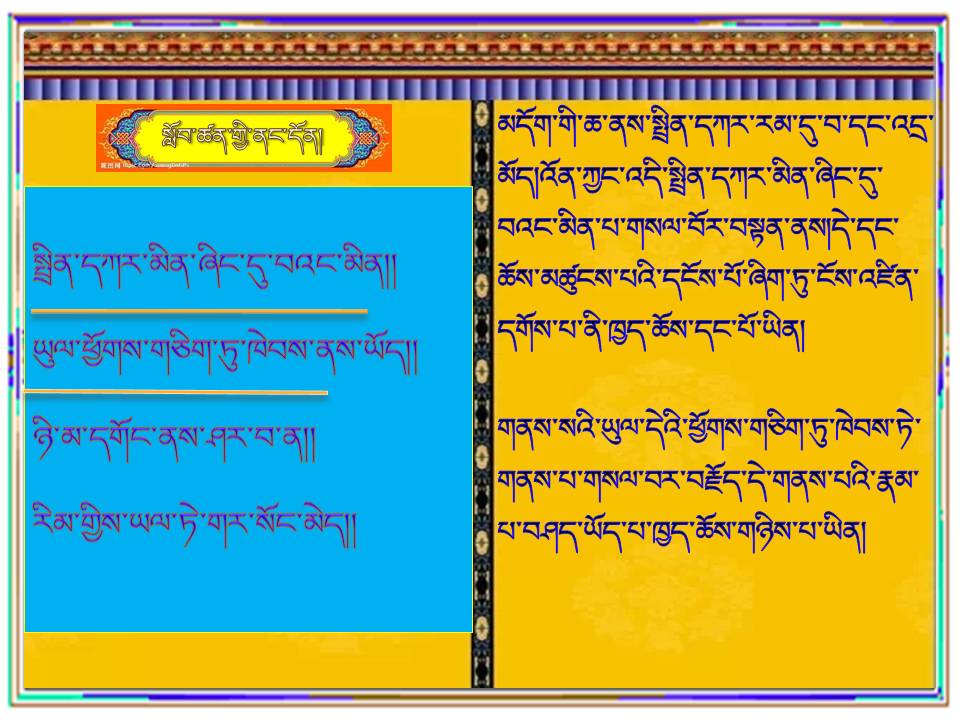 སློབ་ཚན་གྱི་ནང་དོན།
སྤྲིན་དཀར་མིན་ཞིང་དུ་བའང་མིན།།
ཡུལ་ཕྱོགས་གཅིག་ཏུ་ཁེབས་ནས་ཡོད།།
ཉི་མ་དགོང་ནས་ཤར་བ་ན།།
རིམ་གྱིས་ཡལ་ཏེ་གར་སོང་མེད།།
མདོག་གི་ཆ་ནས་སྤྲིན་དཀར་རམ་དུ་བ་དང་འདྲ་
མོད།འོན་ཀྱང་འདི་སྤྲིན་དཀར་མིན་ཞིང་དུ་
བའང་མིན་པ་གསལ་བོར་བསྟན་ནས།དེ་དང་
ཆོས་མཚུངས་པའི་དངོས་པོ་ཞིག་ཏུ་ངོས་འཛིན་
དགོས་པ་ནི་ཁྱད་ཆོས་དང་པོ་ཡིན།
གནས་སའི་ཡུལ་དེའི་ཕྱོགས་གཅིག་ཏུ་ཁེབས་ཏེ་
གནས་པ་གསལ་བར་བརྗོད་དེ་གནས་པའི་རྣམ་
པ་བཤད་ཡོད་པ་ཁྱད་ཆོས་གཉིས་པ་ཡིན།